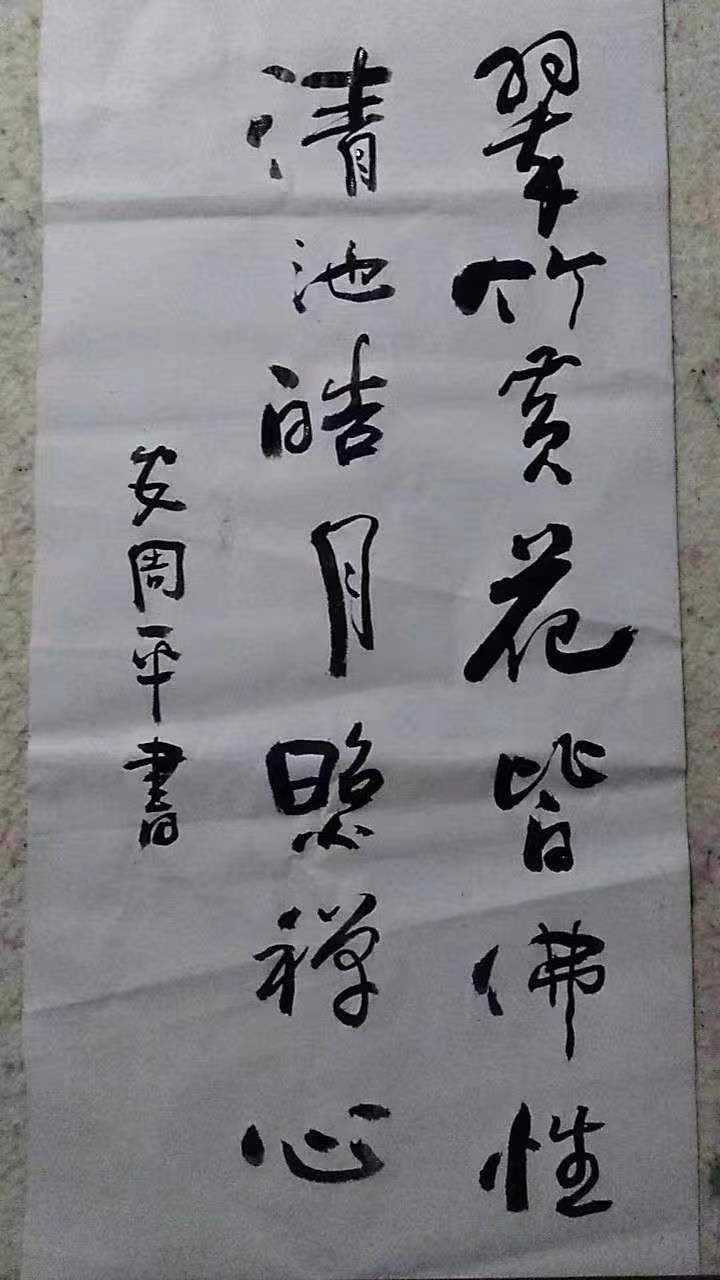 翠竹黄花皆佛性
清池皓月照禅心
安周平書